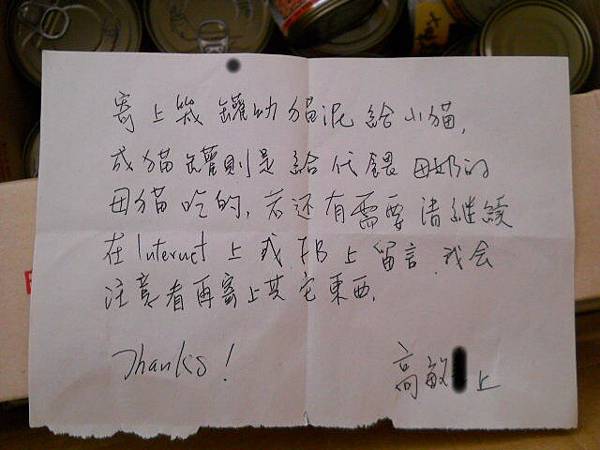 寄上幾罐幼貓泥給小貓,
成貓罐則是給代餵母奶的
母貓吃的,若還有需要請繼續
在Internet上或FB上留言,我会
注意看再寄上其它東西.
Thanks!
高敏 上